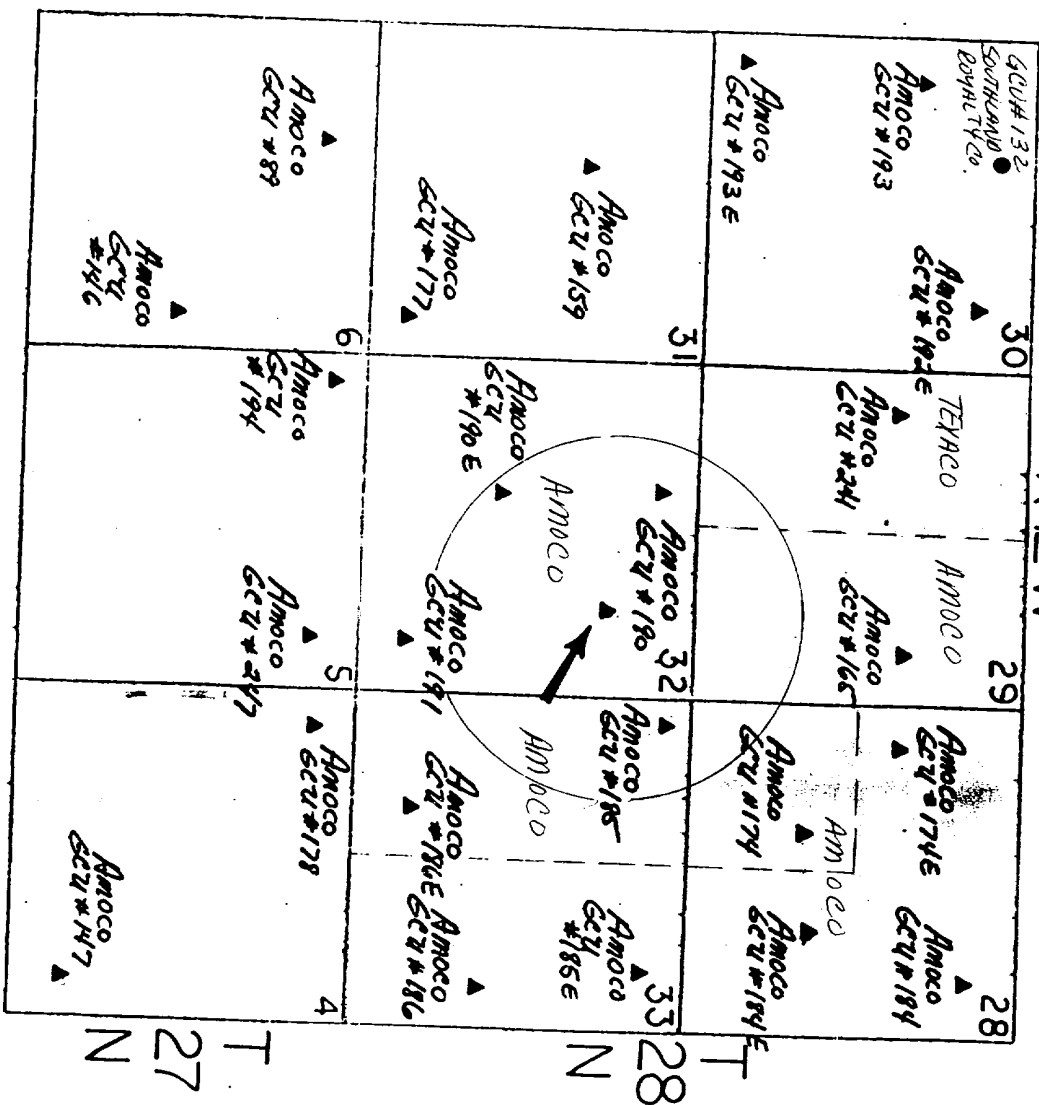 GCU#132
SOUTHLAND
ROYALTY CO.
Amoco
GCU #193
Amoco
GCU #192E
30
Amoco
GCU #193E
TEXACO
AMOCO
29
Amoco
GCU #241
Amoco
GCU #165
Amoco
GCU #174E
Amoco
GCU #184
28
Amoco
GCU #174
AMOCO
Amoco
GCU #184E
31
Amoco
GCU #159
Amoco
GCU #177
Amoco
GCU #190
32
Amoco
GCU
#190E
AMOCO
Amoco
GCU #191
Amoco
GCU #185
AMOCO
Amoco
GCU
#185E
33
Amoco
GCU #186E
Amoco
GCU #186
T
28
N
6
Amoco
GCU #89
Amoco
GCU
#146
5
Amoco
GCU
#194
Amoco
GCU #247
4
Amoco
GCU #178
Amoco
GCU #147
T
27
N